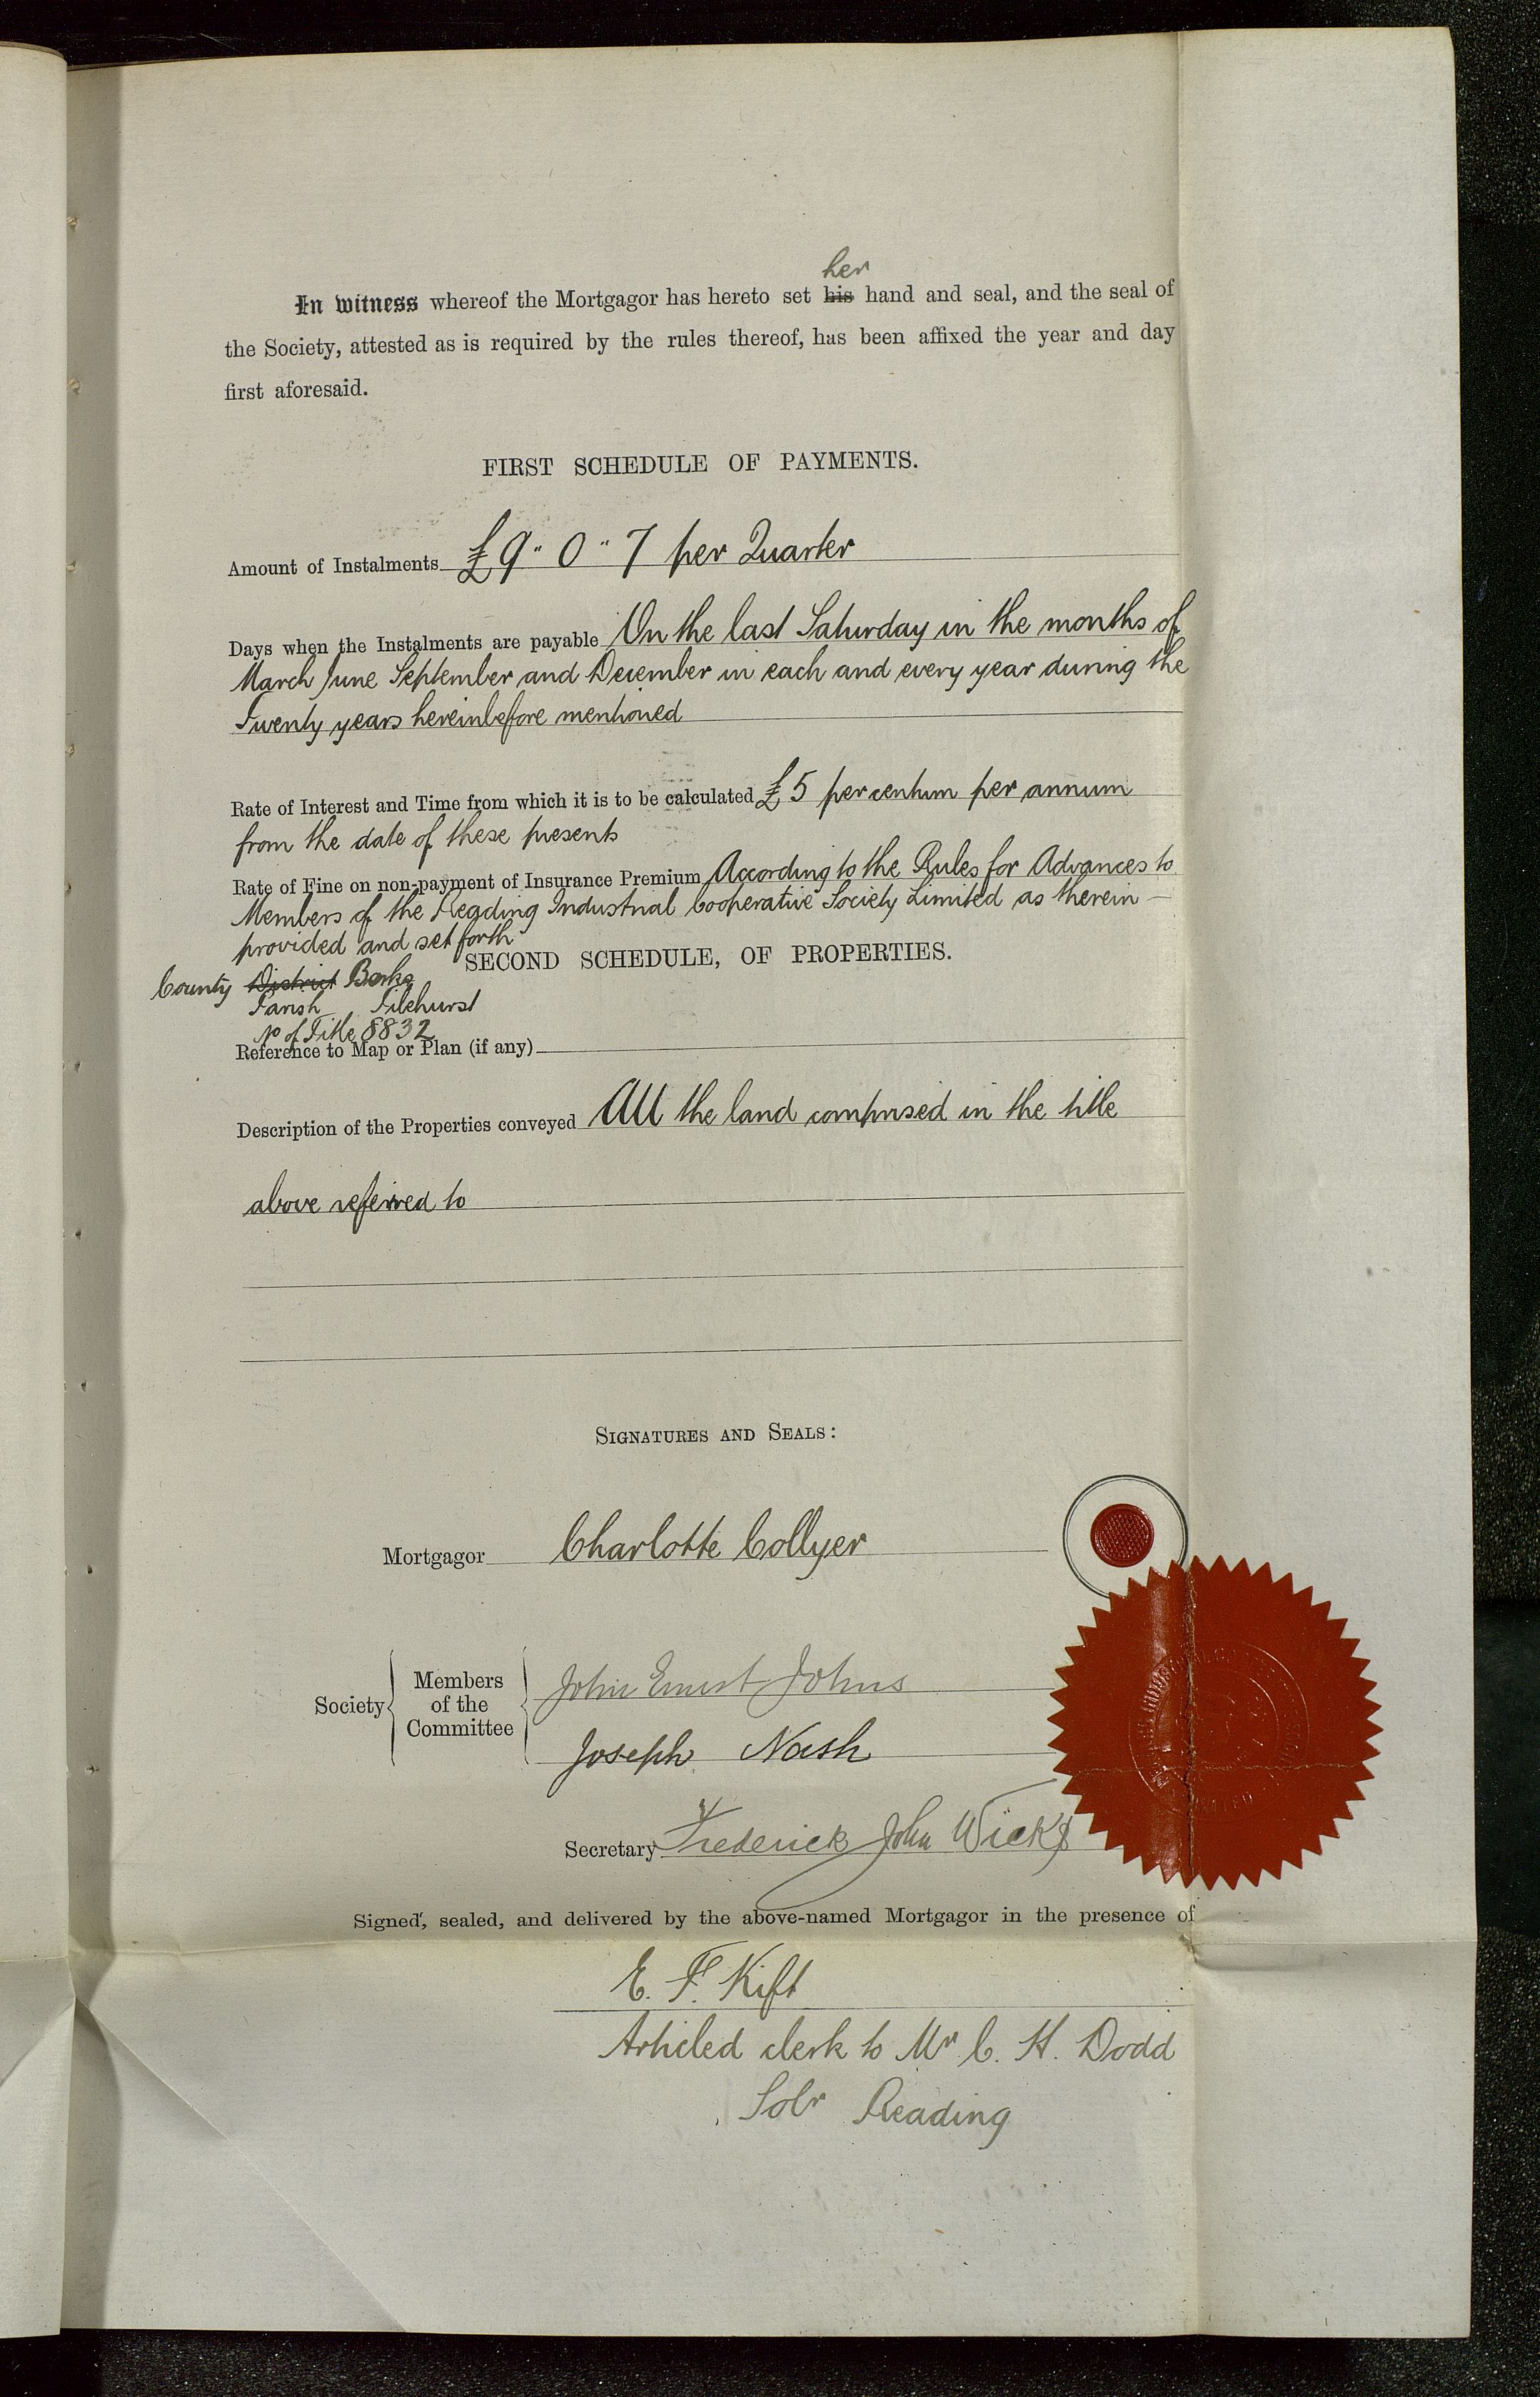 her
In witness whereof the Mortgagor has hereto set his hand and seal, and the seal of
the Society, attested as is required by the rules thereof, has been affixed the year and day
first aforesaid.
FIRST SCHEDULE OF PAYMENTS.
Amount of Instalments £9 " 0 " 7 per Quarter
Days when the Instalments are payable On the last Saturday in the months of
March June September and December in each and every year during the
Twenty years hereinbefore mentioned
Rate of Interest and Time from which it is to be calculated £5 per centum per annum
from the date of these presents
Rate of Fine on non-payment of Insurance Premium According to the Rules for Advances to
Members of the Reading Industrial Cooperative Society Limited as therein —
provided and set forth
SECOND SCHEDULE, OF PROPERTIES.
County District Berks
Parish Tilehurst
No of Title 8832
Reference to Map or Plan (if any)
Description of the Properties conveyed All the land comprised in the title
above referred to
SIGNATURES AND SEALS:
Mortgagor Charlotte Collyer
Society { Members of the Committee { John Ernest Johns
Joseph Nash
Secretary Frederick John Wicks
Signed, sealed, and delivered by the above-named Mortgagor in the presence of
E. F. Kift
Articled clerk to Mr C. H. Dodd
Solr Reading